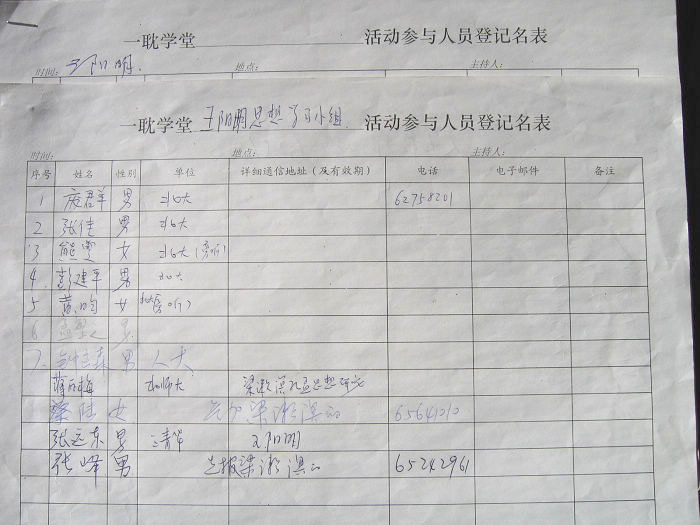 一耽学堂 活动参与人员登记名表
时间: 王阳明. 地点: 主持人:
一耽学堂 王阳明思想学习小组 活动参与人员登记名表
时间: 地点: 主持人:
序号 姓名 性别 单位 详细通信地址（及有效期） 电话 电子邮件 备注
1 庞君羊 男 北大 62758201
2 张佳 男 北大
3 熊 女 北大(旁听)
4 彭建平 男 北大
5 黄昀 女 北大(旁听)
6 孟 男
7. 森 男 人大
蒋丽梅 北师大 梁漱溟孔孟思想研究
陆 女 梁漱溟 65641010
张远东 男 清华 王阳明
张峰 男 梁漱溟 65242961